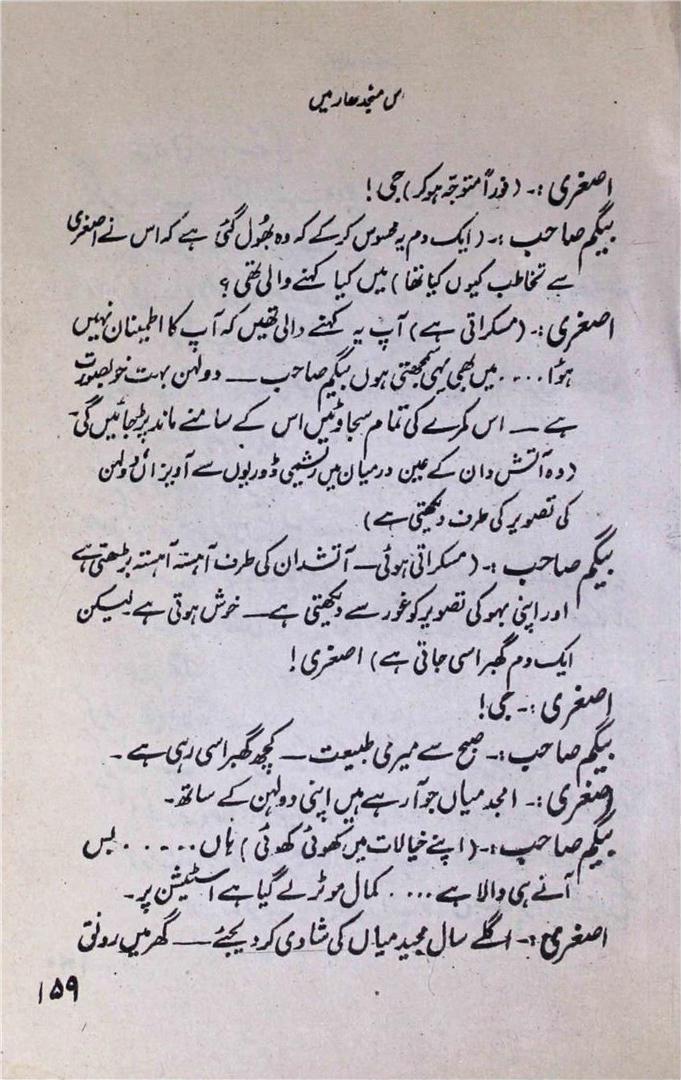 اس منجدھار میں
اصغری :۔ (فوراً متوجّہ ہوکر) جی!
بیگم صاحب :۔ (ایک دم یہ محسوس کرکے کہ وہ بھُول گئی ہے کہ اس نے اصغری
سے تخاطب کیوں کیا تھا) میں کیا کہنے والی تھی؟
اصغری :۔ (مسکراتی ہے) آپ یہ کہنے والی تھیں کہ آپ کا اطمینان نہیں
ہؤا.... میں بھی یہی سمجھتی ہوں بیگم صاحب — دولہن بہت خوبصورت
ہے — اس کمرے کی تمام سجاوٹیں اس کے سامنے ماند پڑجائیں گی۔
(وہ آتش دان کے عین درمیان میں ریشیمی ڈوریوں سے آویزاں دولہن
کی تصویر کی طرف دیکھتی ہے)
بیگم صاحب :۔ (مسکراتی ہوئی — آتشدان کی طرف آہستہ آہستہ بڑھتی ہے
اور اپنی بہو کی تصویر کو غور سے دیکھتی ہے — خوش ہوتی ہے لیکن
ایک دم گھبرا سی جاتی ہے) اصغری!
اصغری :۔ جی!
بیگم صاحب :۔ صبح سے میری طبیعت — کچھ گھبرا سی رہی ہے۔
اصغری :۔ امجد میاں جو آرہے ہیں اپنی دولہن کے ساتھ۔
بیگم صاحب :۔ (اپنے خیالات میں کھوئی کھوئی) ہاں..... بس
آنے ہی والا ہے.... کمال موٹر لے گیا ہے اسٹیشن پر۔
اصغری :۔ اگلے سال مجید میاں کی شادی کردیجئے — گھر میں رونق
۱۵۹